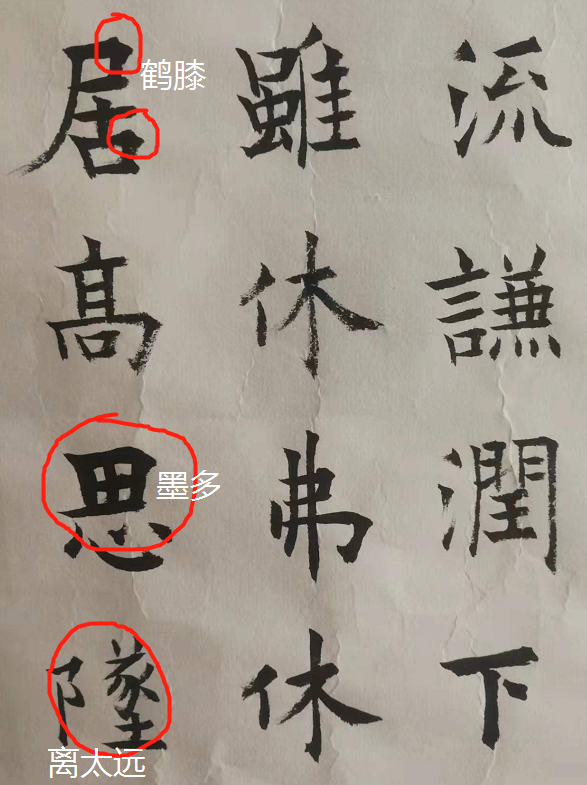 流謙潤下
雖休弗休
居髙思墜
鹤膝
墨多
离太远